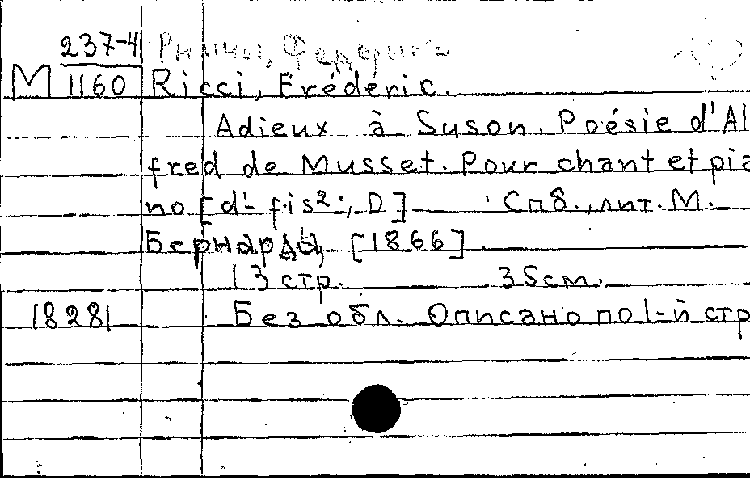 237-4 Риччи, Федерико
М 1160 Ricci, Fréderic.
Adieux à Suson. Poésie d'Al
fred de Musset. Pour chant et pia
no [d'-fis²; D] Спб., лит. М.
Бернарда, [1866]
13 стр. 35 см.
18281 Без обл. Описано по 1-й стр